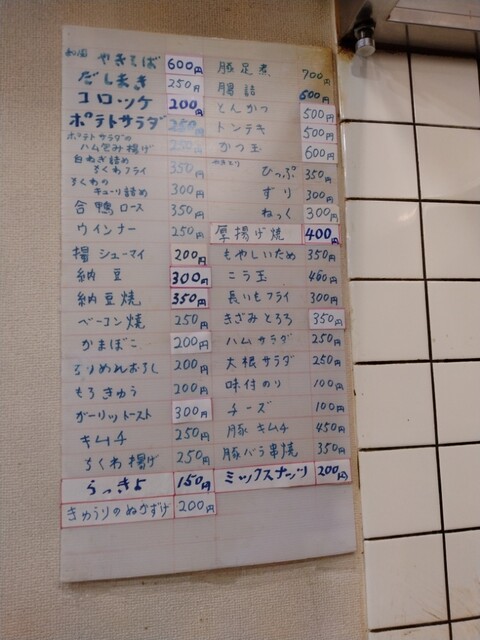 やきそば 600円
だしまき 250円
コロッケ 200円
ポテトサラダ 250円
ポテトサラダの
ハム包み揚げ 250円
白ねぎ詰め
ちくわフライ 350円
ちくわの
キューリ詰め 300円
合鴨ロース 350円
ウインナー 250円
揚シューマイ 200円
納豆 300円
納豆焼 350円
ベーコン焼 250円
かまぼこ 200円
ちりめんおろし 200円
もろきゅう 200円
ガーリットースト 300円
キムチ 250円
ちくわ揚げ 250円
らっきょ 150円
きゅうりのぬかずけ 200円
豚足煮 700円
腸詰 600円
とんかつ 500円
トンテキ 500円
かつ玉 600円
やきとり
ひっぷ 350円
ずり 300円
ねっく 300円
厚揚げ焼 400円
もやしいため 350円
ニラ玉 400円
長いもフライ 300円
きざみとろろ 350円
ハムサラダ 250円
大根サラダ 250円
味付のり 100円
チーズ 100円
豚キムチ 450円
豚バラ串焼 350円
ミックスナッツ 200円